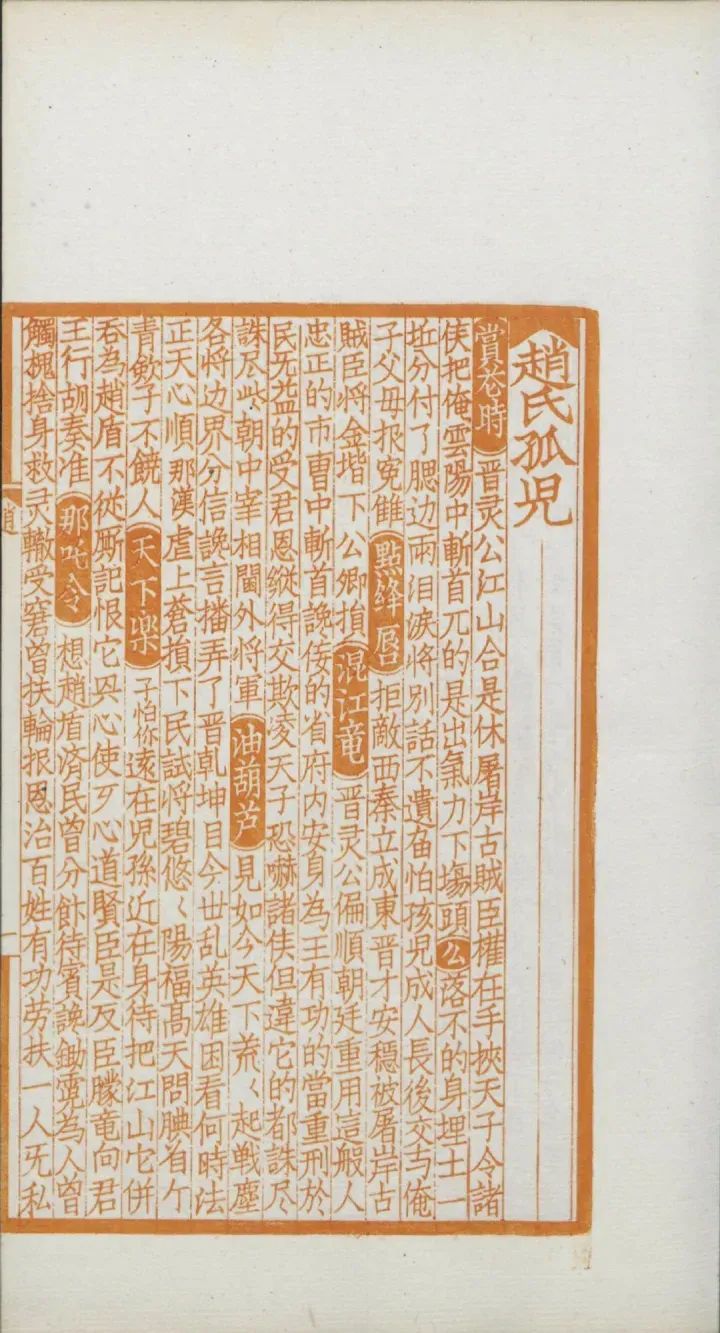 趙氏孤児
賞花時 晋灵公江山合是休屠岸古賊臣權在手挾天子令諸
侯把俺雲陽中斬首兀的是出氣力下塲頭 公 落不的身埋土一
坵分付了腮边兩泪淚将別話不遺留怕孩児成人長後交与俺
子父母报冤雠 點絳唇 拒敵西秦立成東晋才安穏被屠岸古
賊臣将金堦下公卿損 混江竜 晋灵公偏順朝廷重用這般人
忠正的市曹中斬首讒佞的省府内安身為王有功的當重刑於
民无益的受君恩縱得交欺凌天子恐嚇諸侯但違它的都誅尽
誅尽些朝中宰相閫外将軍 油葫芦 見如今天下荒〱起戦塵
各将边界分信讒言播弄了晋乹坤目今丗乱英雄困看何時法
正天心順那漢虐上蒼損下民試将碧悠〱陽福髙天問腆着个
青歛子不饒人 天下楽 子怕你遠在児孫近在身待把江山它併
吞為趙盾不從厮記恨它㒷心使歹心道賢臣是反臣朦竜向君
王行胡奏准 那吒令 想趙盾済民曽分飰待賓讒鋤霓為人曽
觸槐捨身救灵輙受窘曽扶輪报恩治百姓有功劳扶一人无私
趙